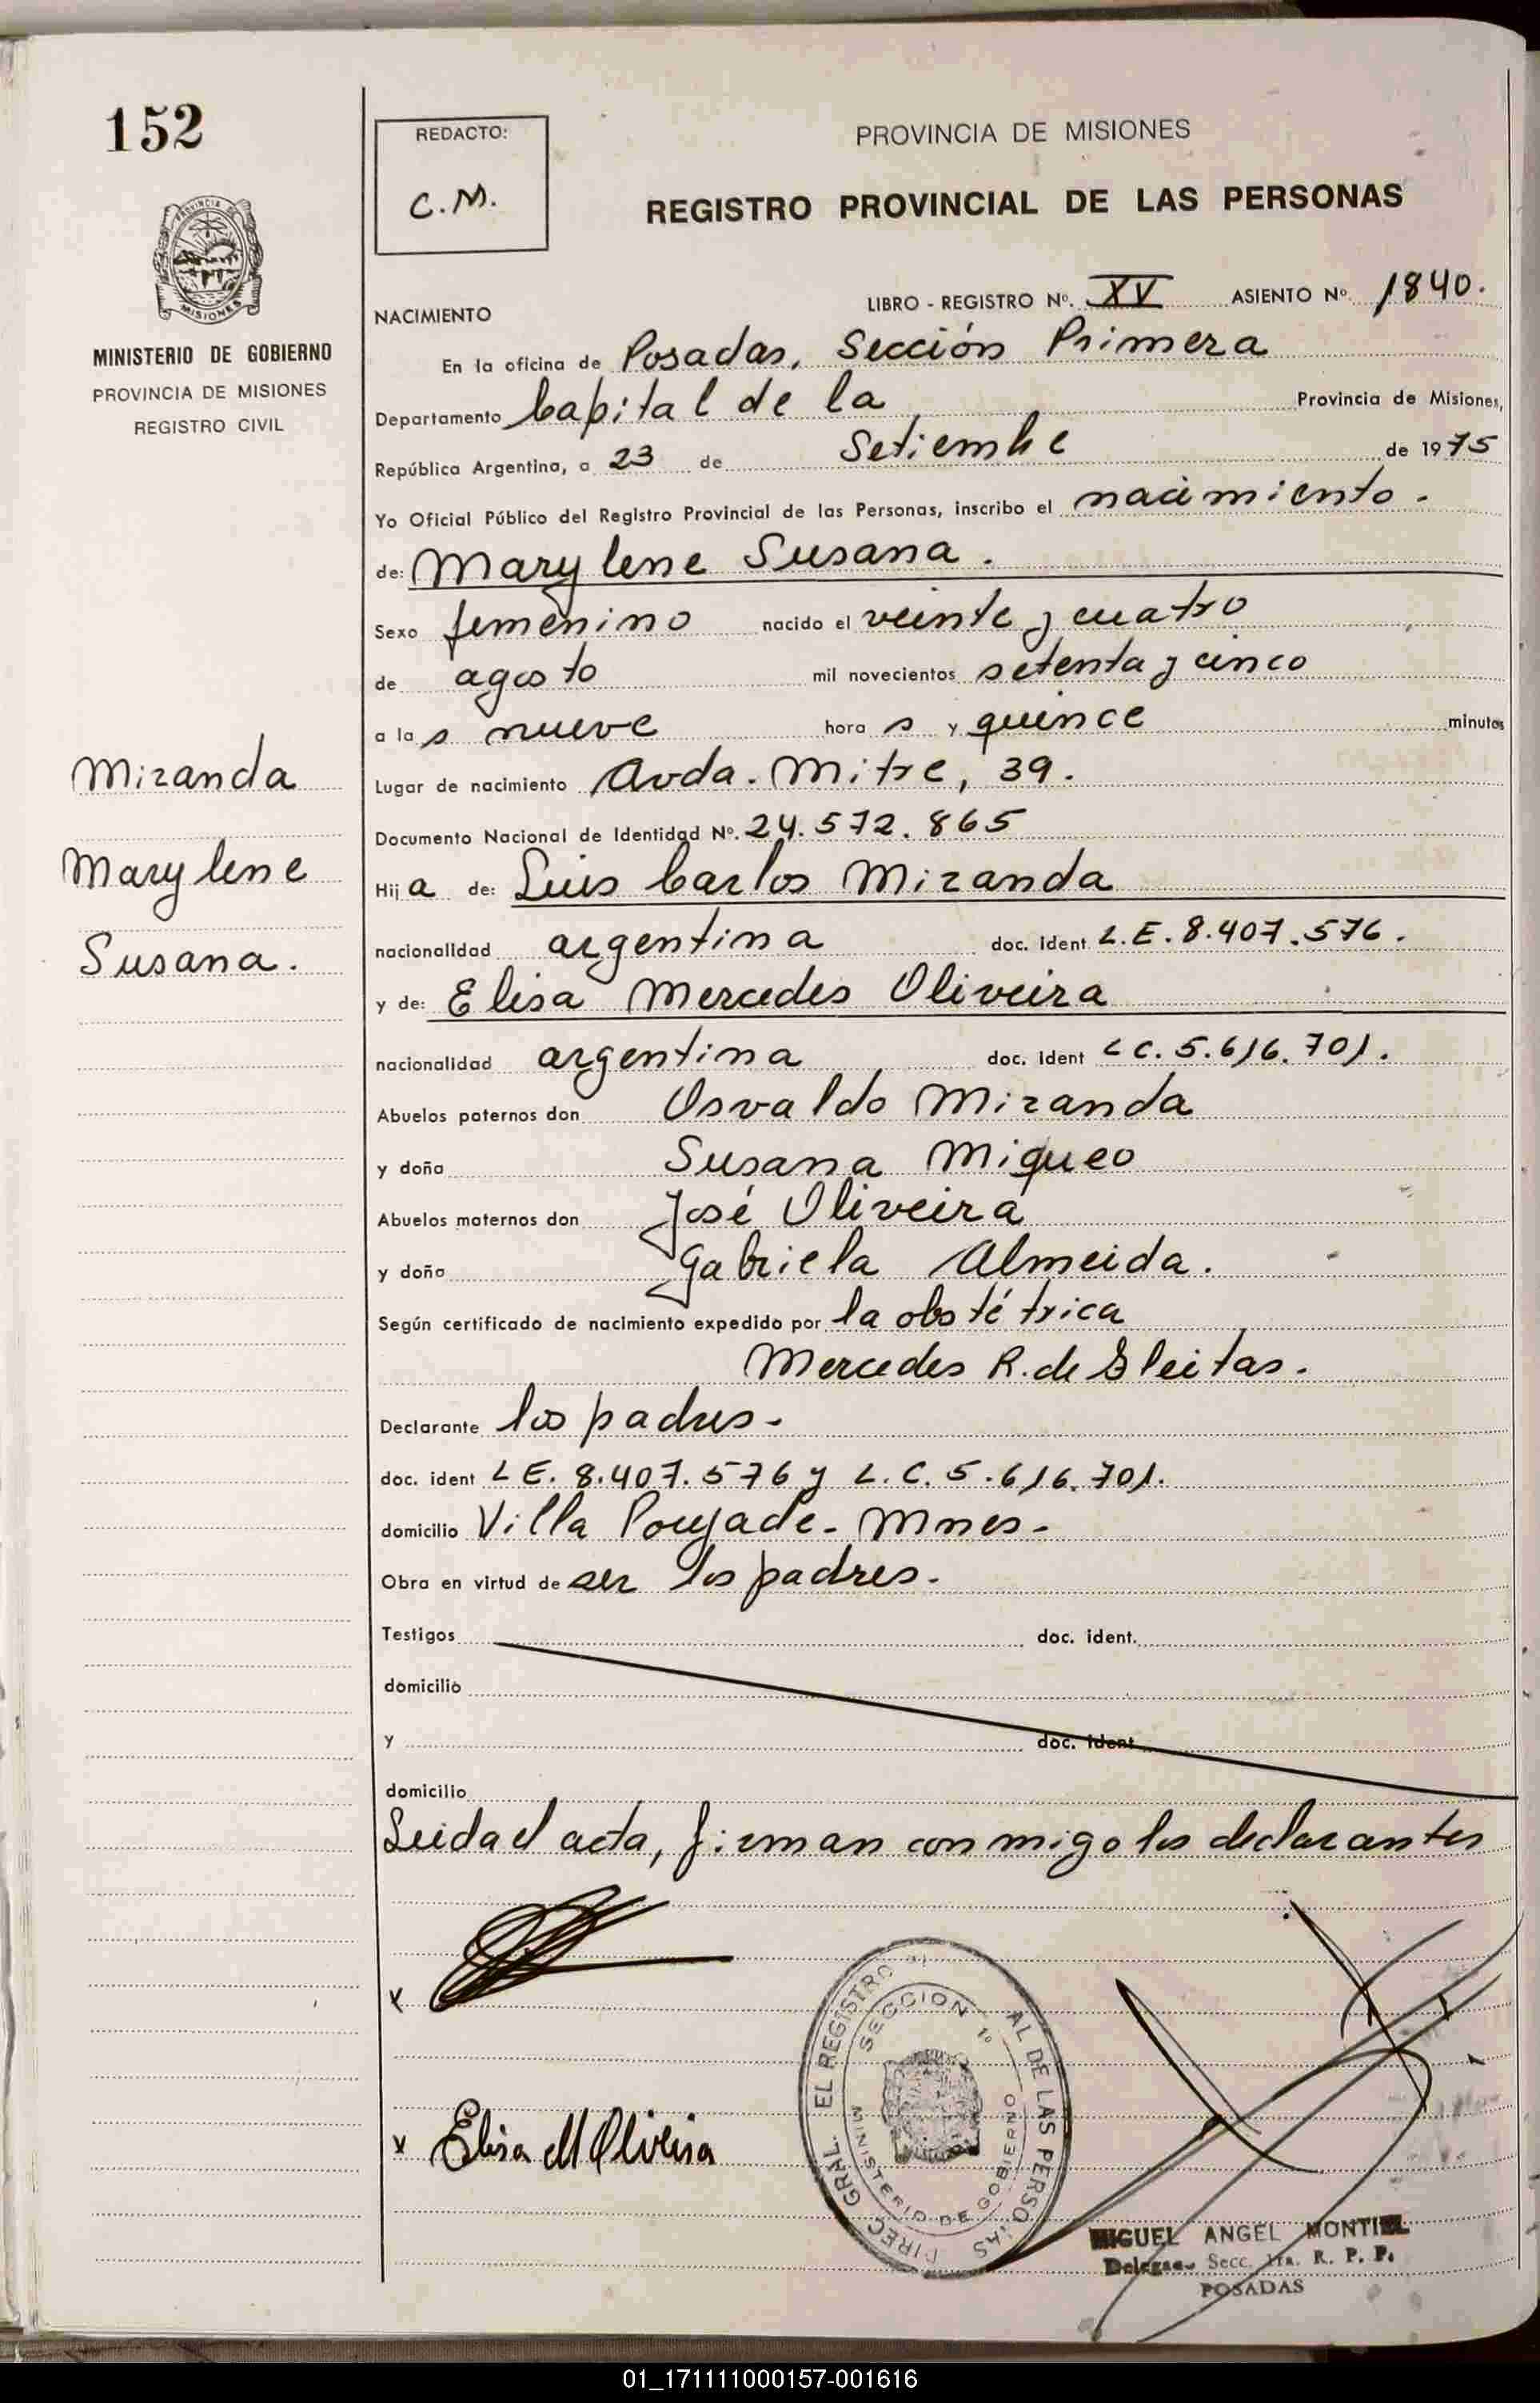 152
MINISTERIO DE GOBIERNO
PROVINCIA DE MISIONES
REGISTRO CIVIL
Miranda
Marylene
Susana.
REDACTO:
C.M.
PROVINCIA DE MISIONES
REGISTRO PROVINCIAL DE LAS PERSONAS
NACIMIENTO LIBRO - REGISTRO Nº. XV ASIENTO Nº 1840.
En la oficina de Posadas, Sección Primera
Departamento Capital de la Provincia de Misiones,
República Argentina, a 23 de Setiembre de 1975
Yo Oficial Público del Registro Provincial de las Personas, inscribo el nacimiento.
de: Marylene Susana.
Sexo femenino nacido el veinte y cuatro
de agosto mil novecientos setenta y cinco
a las nueve horas y quince minutos
Lugar de nacimiento Avda. Mitre, 39.
Documento Nacional de Identidad Nº. 24.572.865
Hija de: Luis Carlos Miranda
nacionalidad argentina doc. ident L.E. 8.407.576.
y de: Elisa Mercedes Oliveira
nacionalidad argentina doc. ident LC. 5.616.701.
Abuelos paternos don Osvaldo Miranda
y doña Susana Miqueo
Abuelos maternos don José Oliveira
y doña Gabriela Almeida.
Según certificado de nacimiento expedido por la obstétrica
Mercedes R. de Gleitas.
Declarante los padres.
doc. ident L E. 8.407.576 y L.C. 5.616.701.
domicilio Villa Poujade - Mnes-
Obra en virtud de ser los padres.
Testigos doc. ident.
domicilio
y doc. ident
domicilio
Leida el acta, firman conmigo los declarantes
x
x Elisa M Oliveira
DIREC GRAL. EL REGISTRO AL DE LAS PERSONAS
SECCION 1º
MINISTERIO DE GOBIERNO
MIGUEL ANGEL MONTIEL
Secc. 1ra. R. P. P.
POSADAS
01_171111000157-001616